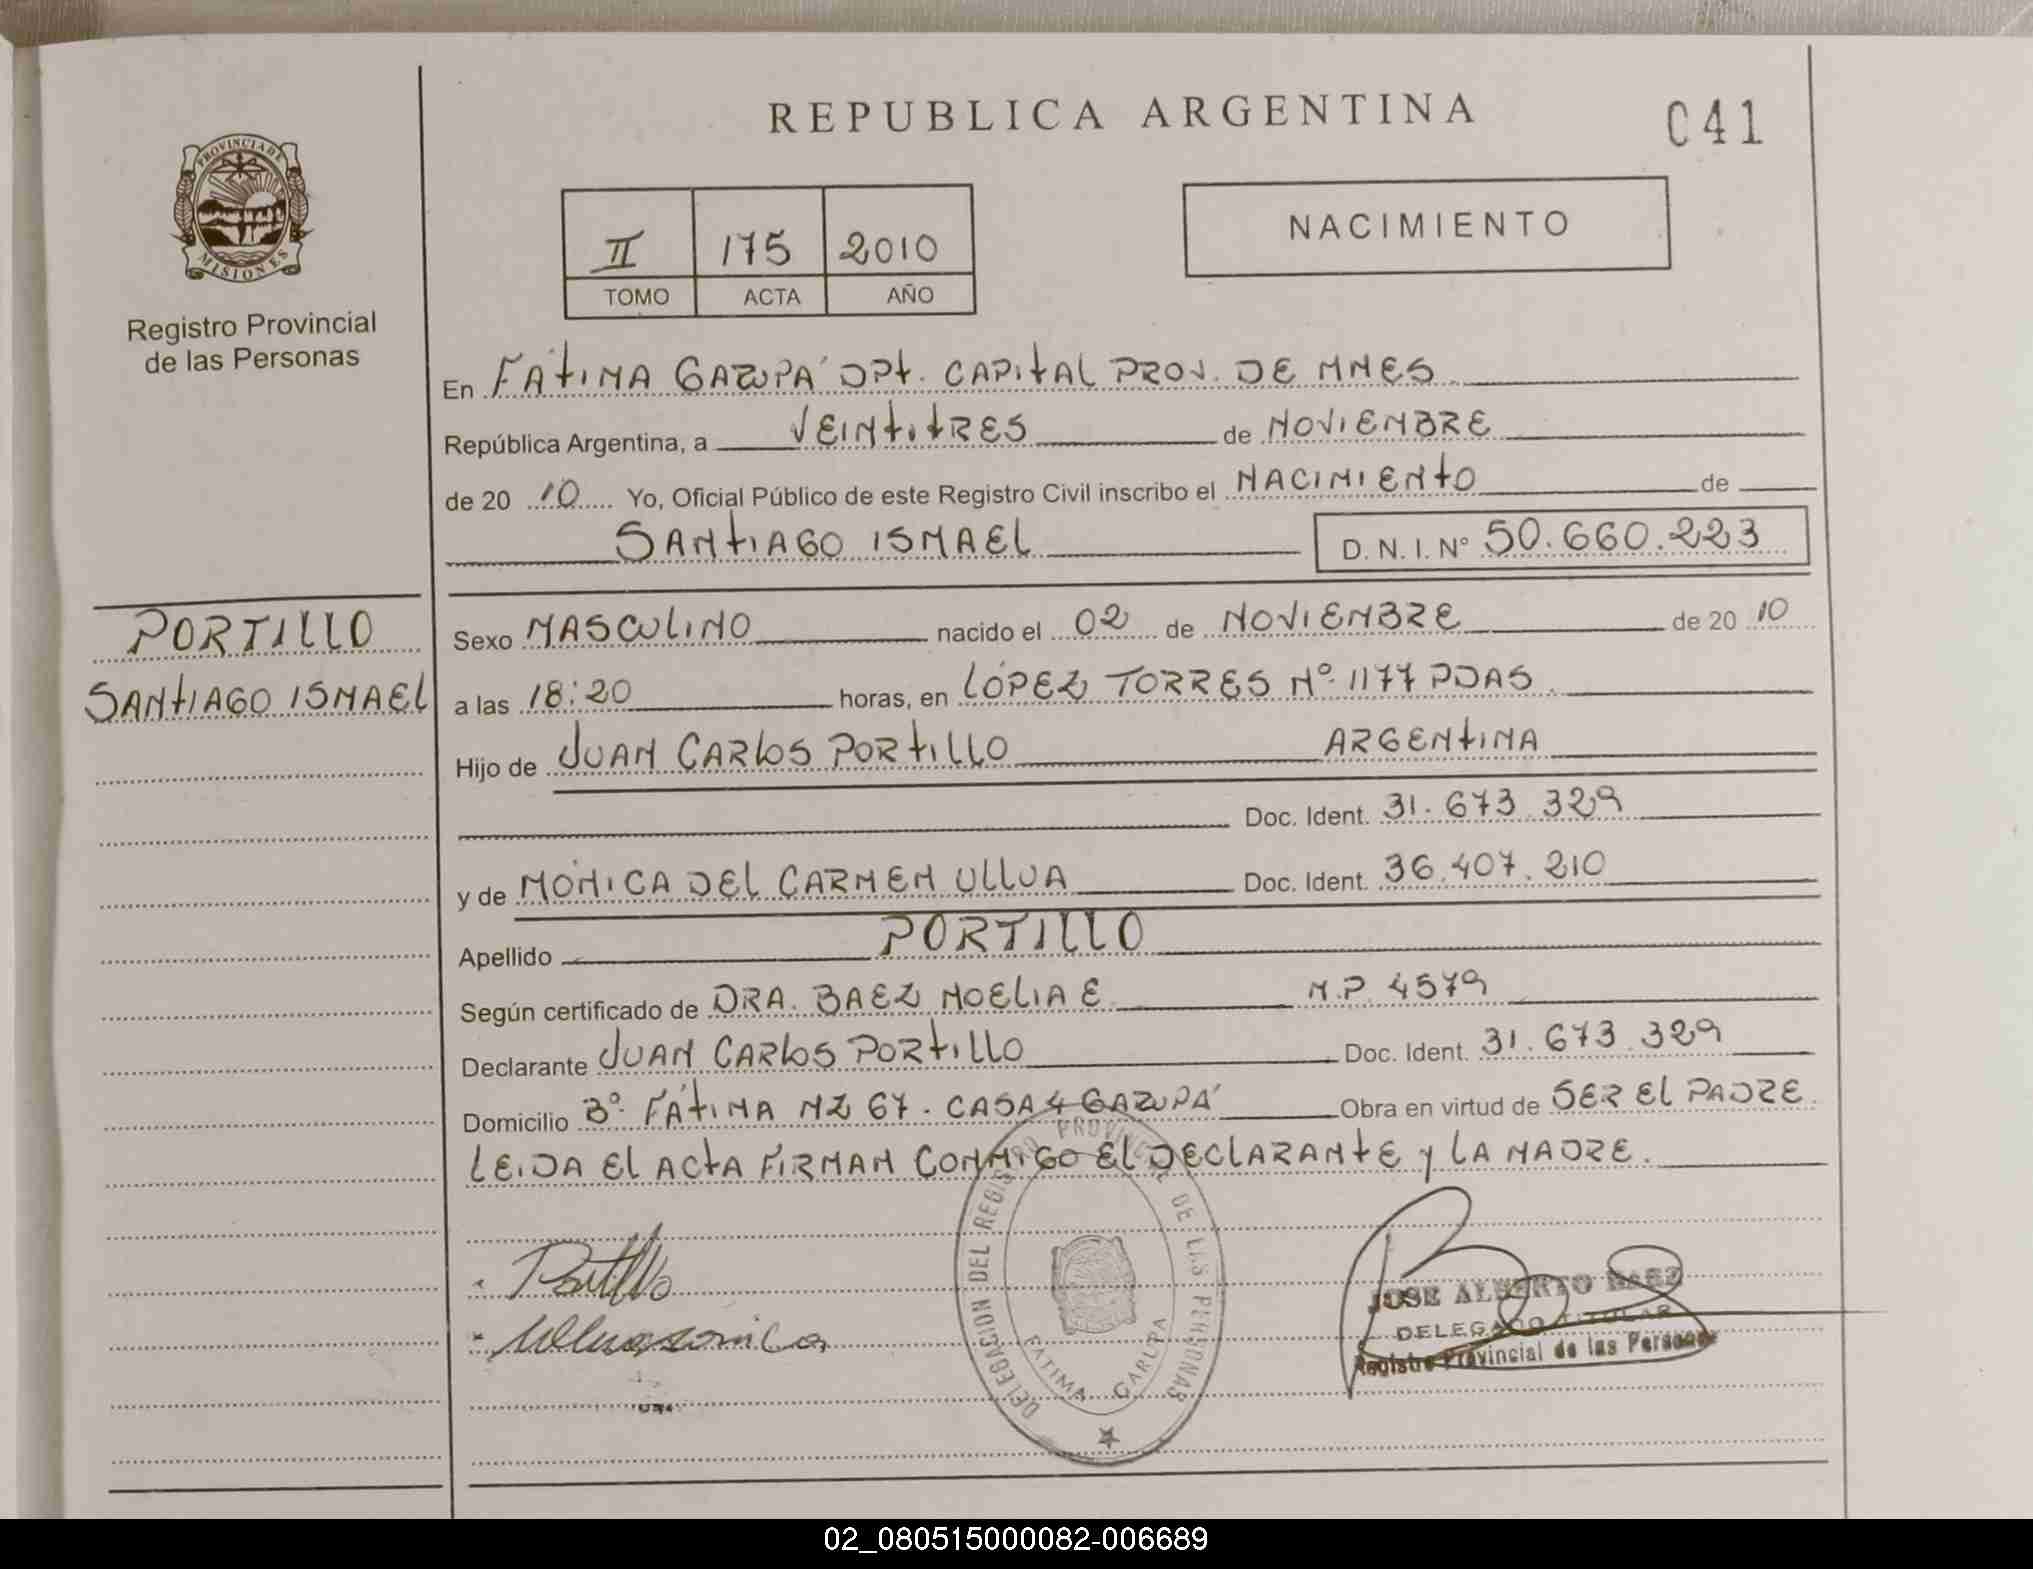 REPUBLICA ARGENTINA
C41
PROVINCIA DE
MISIONES
Registro Provincial
de las Personas
II 175 2010
TOMO ACTA AÑO
NACIMIENTO
En FÁTIMA GARUPÁ DPT. CAPITAL PROV. DE MNES
República Argentina, a VEINTITRES de NOVIEMBRE
de 20 10 Yo, Oficial Público de este Registro Civil inscribo el NACIMIENTO de
SANTIAGO ISMAEL D.N.I. Nº 50.660.223
PORTILLO
SANTIAGO ISMAEL
Sexo MASCULINO nacido el 02 de NOVIEMBRE de 20 10
a las 18:20 horas, en LÓPEZ TORRES Nº 1177 PDAS
Hijo de JUAN CARLOS PORTILLO ARGENTINA
Doc. Ident. 31.673.329
y de MÓNICA DEL CARMEN ULLUA Doc. Ident. 36.407.210
Apellido PORTILLO
Según certificado de DRA. BAEZ NOELIA E M.P. 4579
Declarante JUAN CARLOS PORTILLO Doc. Ident. 31.673.329
Domicilio Bº FÁTIMA MZ 67. CASA 4 GARUPÁ Obra en virtud de SER EL PADRE
LEIDA EL ACTA FIRMAN CONMIGO EL DECLARANTE y LA MADRE.
Portillo
DELEGACION DEL REGISTRO PROVINCIAL DE LAS PERSONAS
FATIMA GARUPA
JOSE ALBERTO BAEZ
DELEGADO TITULAR
Registro Provincial de las Personas
02_080515000082-006689